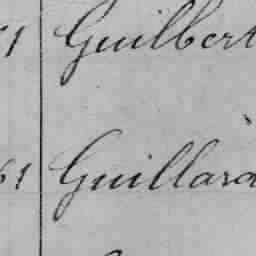 Guilbert
61 Guillard